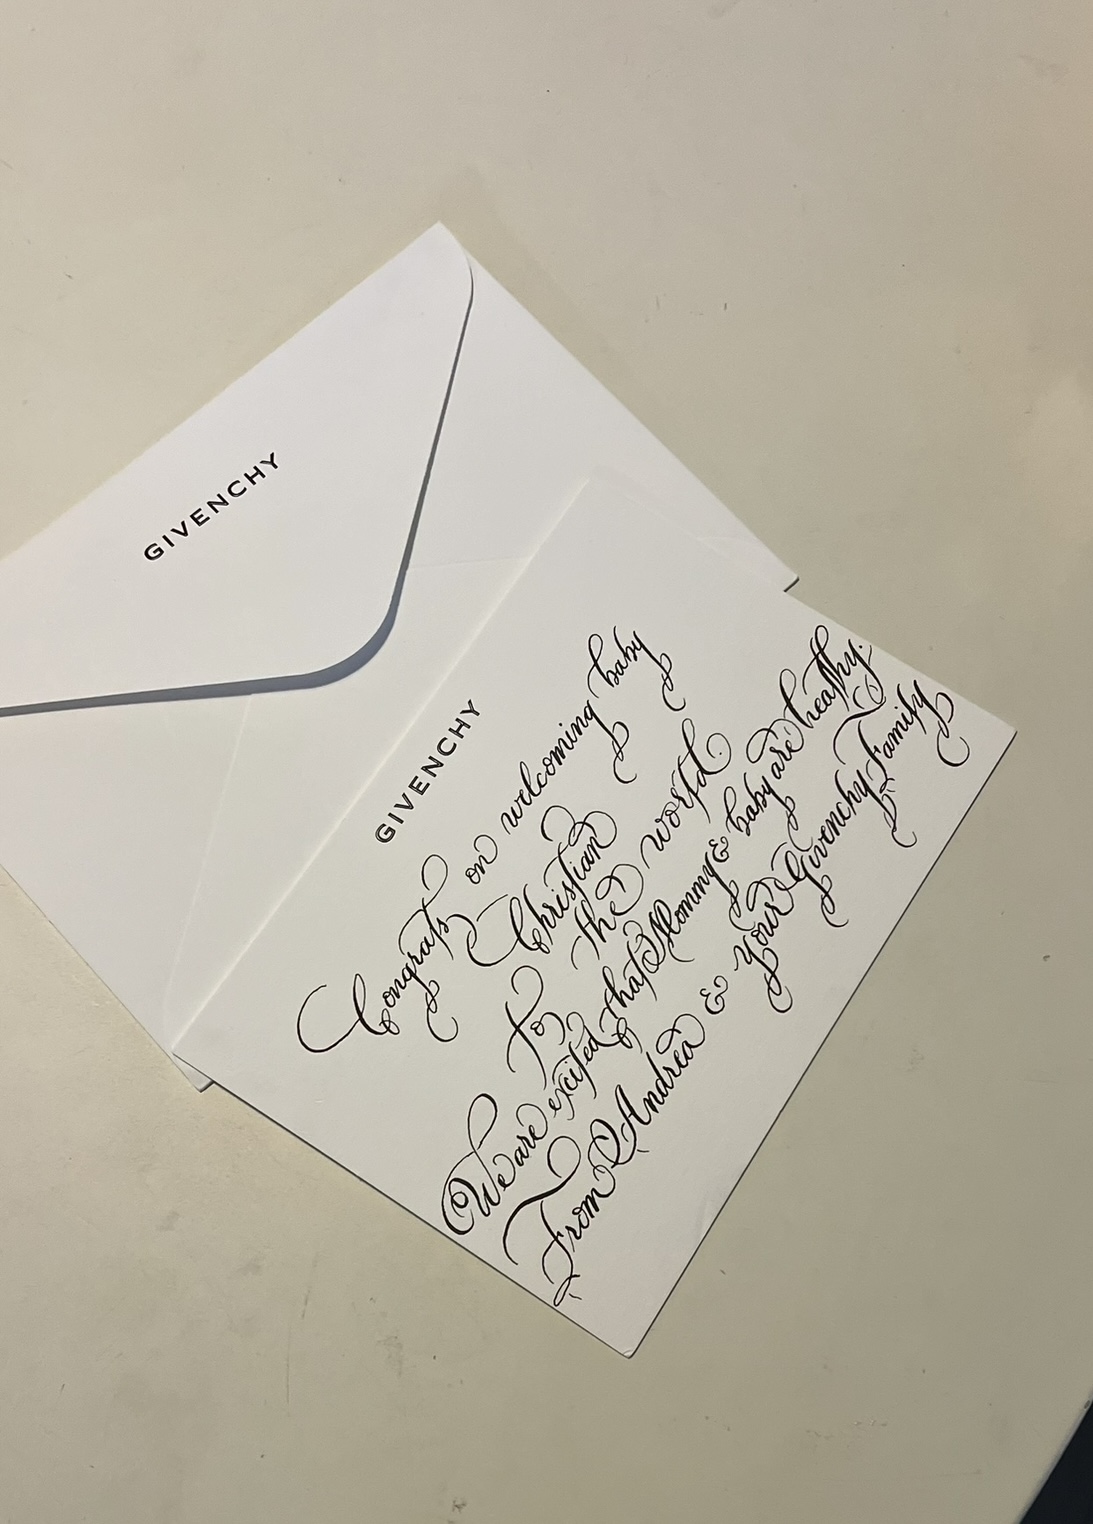 GIVENCHY
GIVENCHY
Congrats on welcoming baby
Christian
to the world.
We are excited that Mommy & baby are healthy.
From Andrea & Your Givenchy Family